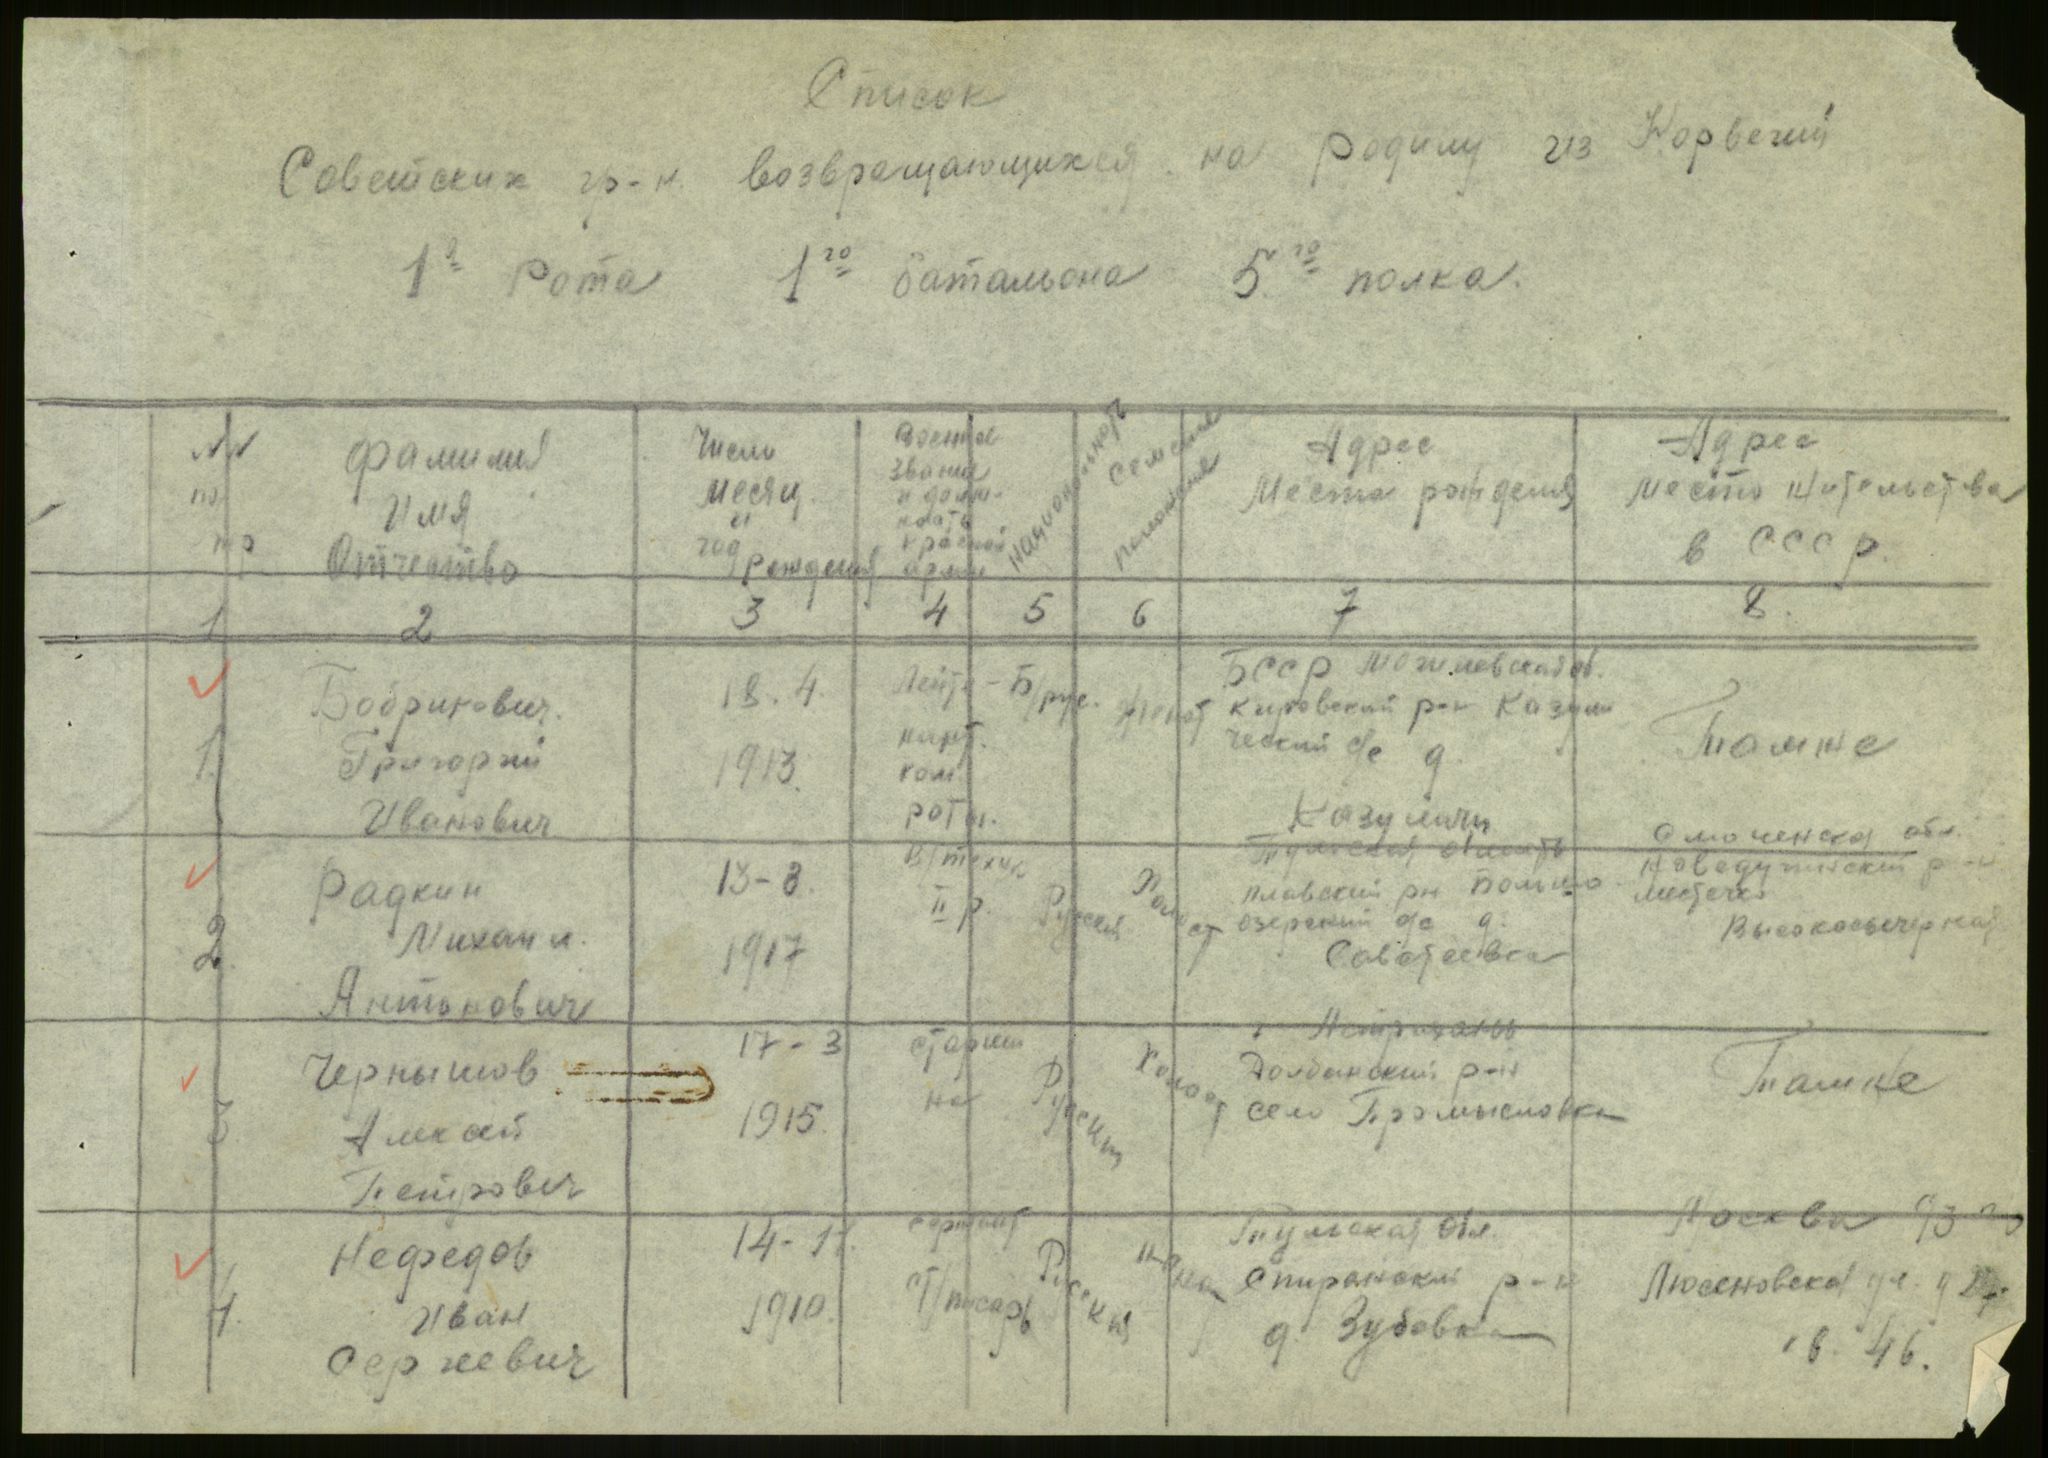 Список
Советских гр-н. возвращающихся на родину из Норвегий
1я Рота 1го батальона 5го полка.
NN по пр
Фамилия Имя Отчество
Число месяц и год рождения
Военное звание и долж-ность красной армии
национальность
семейное положение
Адрес
Места рождения
Адрес
место жительства
в СССР.
1 2 3 4 5 6 7 8.
1.
Бобринович.
Григорий
Иванович
18. 4.
1913.
Лейт-
нант.
ком.
роты.
Б/рус.
женат
БССР Могилевская об.
Кировский р-н Казули
ческий с/с д.
Казуличи
Тамже
2.
Радкин
Михаил.
Антонович
13-8.
1917
В/техник
II р.
Русский
Холост
Тульская область
плавский рн Больше-
озерский с/с д.
Савотеевка
Смоленская обл.
Новодугинский р-н
местечко
3.
Чернышов
Алексей
Петрович
17-3
1915.
старши
на
Русский
Холост
Астрахань
Долбанский р-н
село Промысловка
Тамже
4.
Нефедов
Иван
Сергеевич
14-11.
1910.
сержант
Ст/писарь
Русский
Тульская обл.
р-н
д. Зубовка
Москва 93
Люсеновская ул. д
кв. 46.